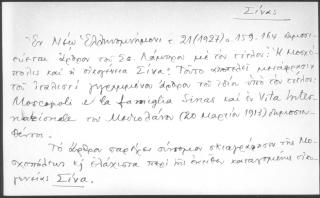 Σίνας
Ἐν Νέῳ Ἑλληνομνήμονι τ 21 (1927) σ 159-164 δημοσι-
εύεται ἄρθρον τοῦ Σπ. Λάμπρου μὲ τὸν τίτλον: Ἡ Μοσχό-
πολις καὶ ἡ οἰκογένεια Σίνα. Τοῦτο ἀποτελεῖ μετάφρασιν
τοῦ ἰταλιστὶ γεγραμμένου ἄρθρου τοῦ ἰδίου ὑπὸ τὸν τίτλον
Moscopoli e la famiglia Sinas καὶ ἐν Vita Inter-
nationale τοῦ Μιλάνου (20 Μαρτίου 1913) δημοσιευ-
θέντος.
Τὸ ἄρθρον παρέχει σύντομον σκιαγράφησιν τῆς Μο-
σχοπόλεως καὶ ἐλάχιστα περὶ τῆς ἐκεῖθεν καταγομένης οἰκο-
γενείας Σίνα.